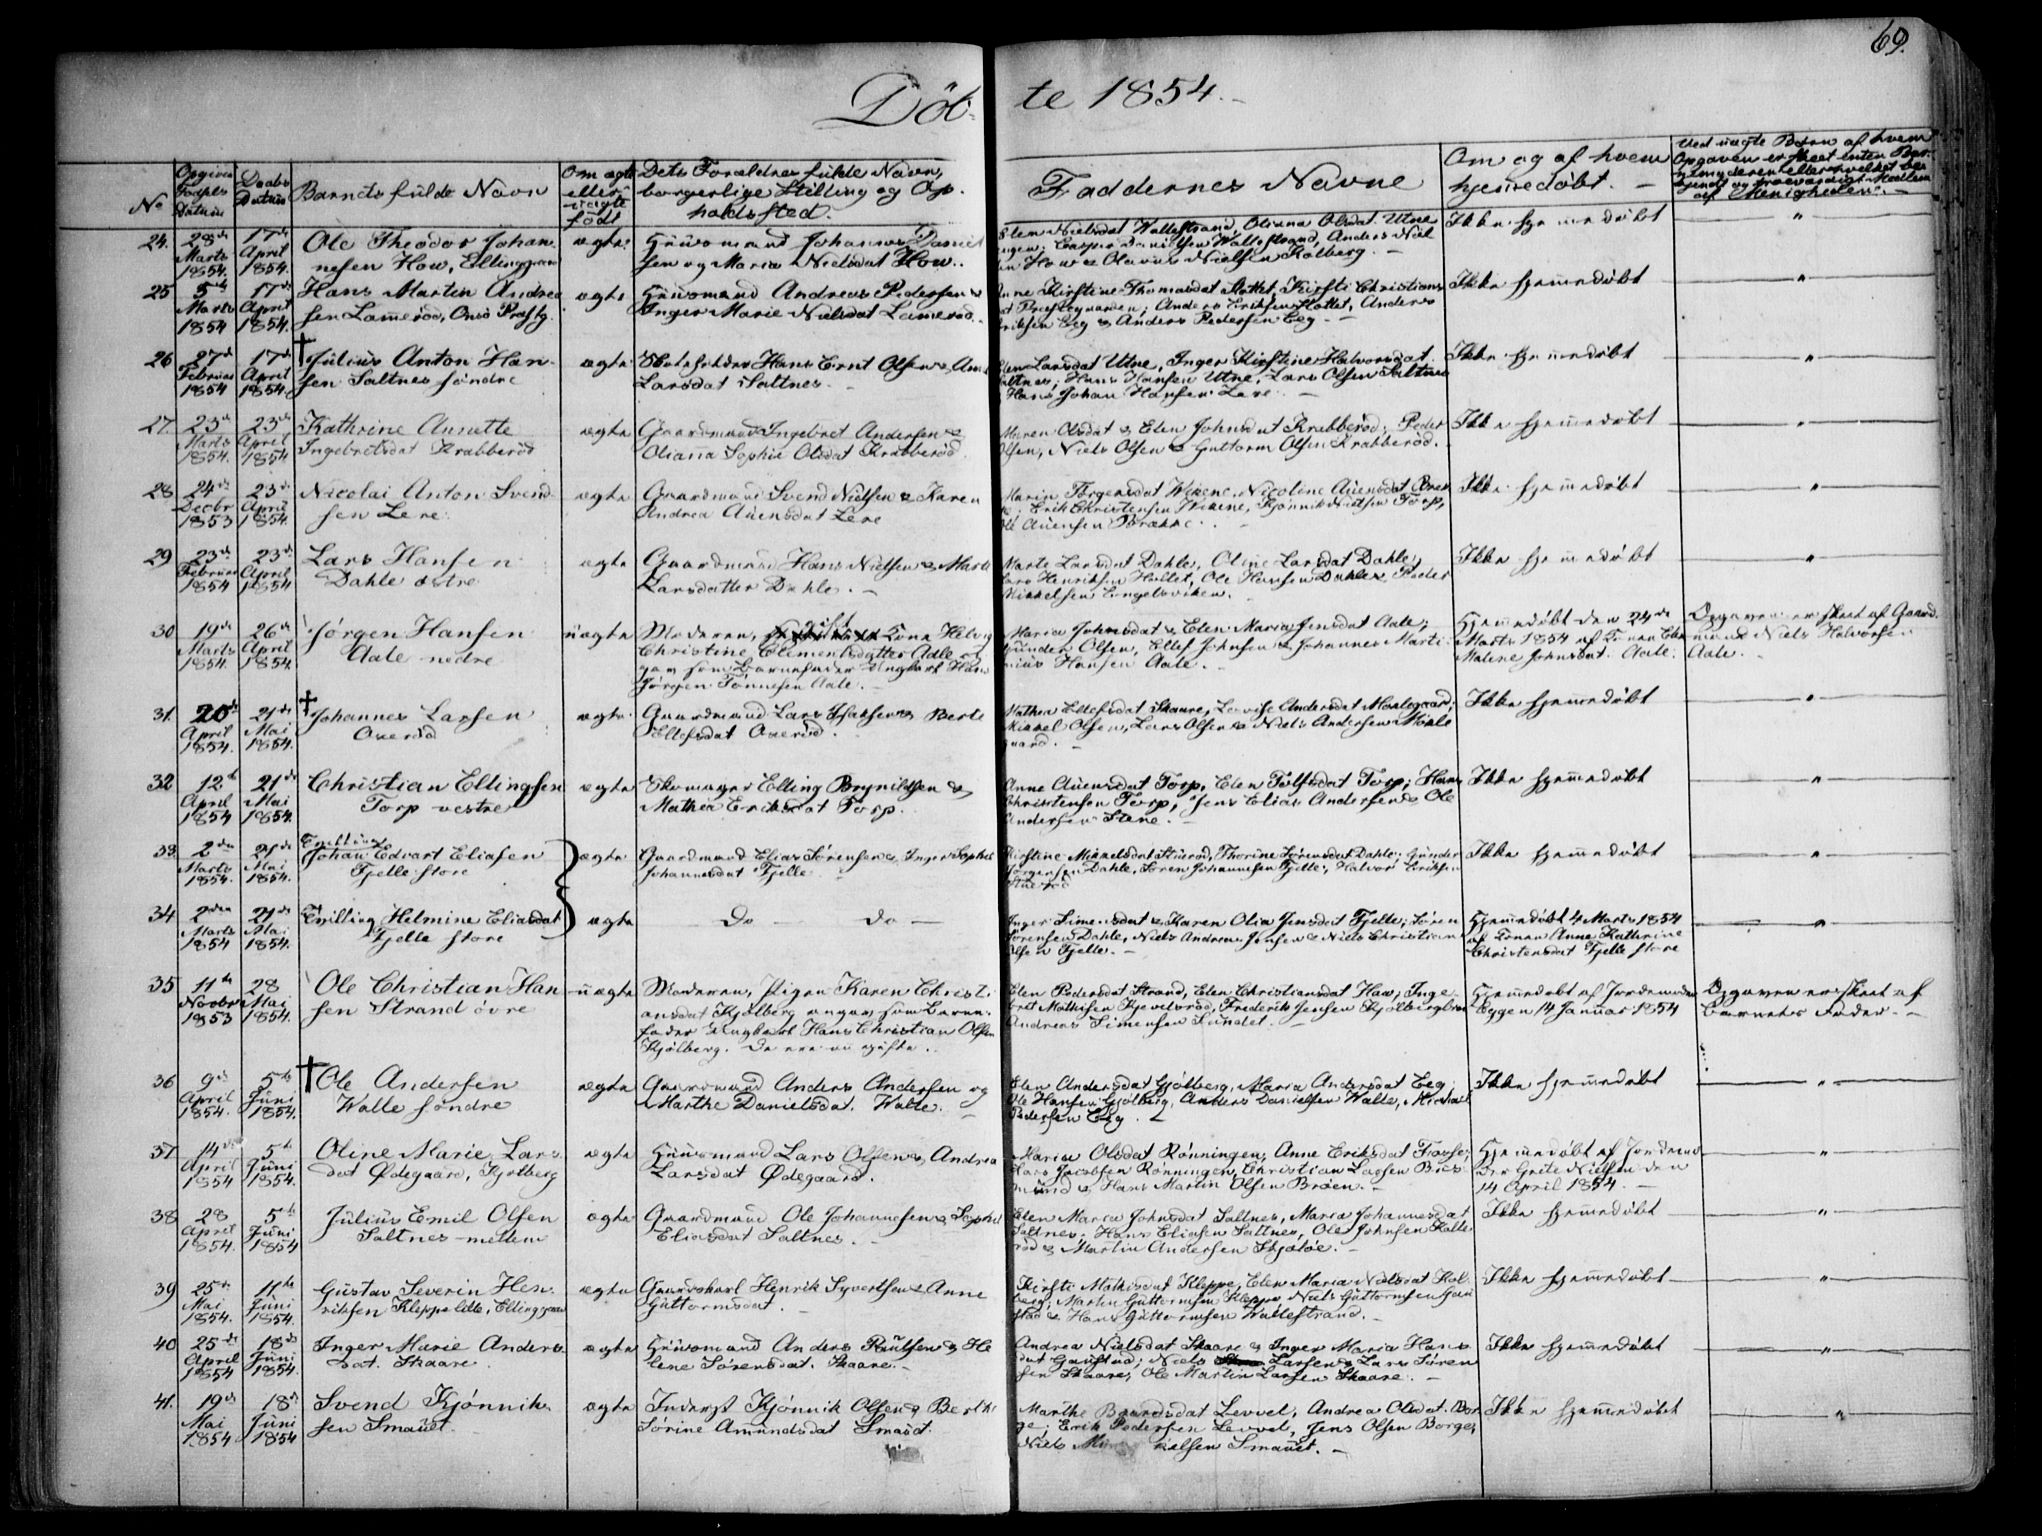 69.
Döb- te 1854.-
No
Opgiven Fødsels Datum
Daabs Datum
Barnets fulde Navn
Om ægte eller uægte født
Dets Forældres fulde Navn, borgerlige Stilling og Opholdssted.
Faddernes Navne
Om og af hvem hjemedøbt. -
Ved uægte Børn af hvem Opgaven er skeet
af Menigheden. -
24. 28de Marts 1854. 17de April 1854.
Ole Theodor Johan-
nesen How, Ellinggaard
ægte.
Huusmand Johannes Daniel-
sen og Maria Nielsdat How..
Elen Nielsdat Wallestrand, Oliana Olsdat Utne
engen; Casper Danielsen Wallestrand, Anders Niel
sen How & Olavus Nielsen Kolberg. -
Ikke hjemedøbt
"
25 5te Marts 1854 17de April 1854.
Hans Martin Andrea
sen Lamerød, Onsø Præstg.
ægte
Huusmand Andreas Pedersen &
Inger Marie Nielsdat Lamerød.
Anne Kirstine Thomasdat Slottet, Kirsti Christians
dat Præstegaarden; Anders Eriksen Slottet, Anders
Eriksen Eeg & Anders Pedersen Eeg. -
Ikke hjemmedøbt
"
26 27de Februar 1854 17de April 1854.
† Julius Anton Han-
sen Saltnes søndre
ægte.
Skoleholder Hans Ernt Olsen &
Larsdat Saltnes. -
Elen Larsdat Utne, Inger Kirstine Halvorsdat
Saltnes; Hans Hansen Utne, Lars Olsen Saltnes
Hans Johan Hansen Lere. -
Ikke hjemmedøbt
"
27. 25de Marts 1854. 23de April 1854
Kathrine Annette
Ingebretsdat Krabberød
ægte
Gaardmand Ingebret Andersen &
Oliana Sophie Olsdat Krabberød.
Maren Olsdat & Elen Johnsdat Krabberød; Peder
Olsen, Niels Olsen & Guttorm Olsen Krabberød.
Ikke hjemmedøbt
"
28 24de Decbr 1853 23de April 1854.
Nicolai Anton Svend-
sen Lere.
ægte
Gaardmand Svend Nielsen & Karen
Andrea Auensdat Lere
Maria Jørgensdat Wikene, Nicoline Auensdat Bræk
ke; Erik Christensen Wikene, Kjønnik Nielsen Torp,
Ole Auensen Brække.
Ikke hjemmedøbt
"
29 23de Februar 1854 23de April 1854
Lars Hansen
Dahle østre
ægte
Gaardmand Hans Nielsen & Marte
Larsdatter Dahle. -
Marte Larsdat Dahle, Oline Larsdat Dahle;
Lars Henriksen Hallet, Ole Hansen Dahle & Peder
Mikkelsen Engelsviken.
Ikke hjemmedøbt
"
30 19de Marts 1854. 26de April 1854.
Jørgen Hansen
Aale nedre
uægte
Moderen, gift Kone Helvig
Christine Clementsdatter Aale og
gav som Barnefader Ungkarl Hans
Jørgen Tønnesen Aale. -
Maria Johnsdat & Elen Maria Jensdat Aale;
Gunder Olsen, Ellef Johnsen & Johannes Marti-
nius Hansen Aale. -
Hjemmedøbt den 24de
Marts 1854 af Konen Elen
Maline Johnsdat. Aale.
Opgaven er skeet af Gaard-
mand Niels Halvorsen
Aale.
31. 20de April 1854. 21de Mai 1854.
† Johannes Larsen
Ouerød
ægte.
Gaardmand Lars Isaksen & Berte
Ellefsdat Ouerød.
Mathea Ellefsdat Skaare, Lovise Andersdat Moalegaard;
Mikkel Olsen, Lars Olsen & Niels Andersen Moale
gaard. -
Ikke hjemmedøbt
"
32 12te April 1854 21de Mai 1854.
Christian Ellingsen
Torp vestre
ægte
Skomager Elling Brynildsen &
Mathea Eriksdat Torp.
Anne Auensdat Torp, Elen Tolfsdat Torp; Hans
Christensen Torp, Jens Elias Andersen & Ole
Andersen Stene. -
Ikke hjemmedøbt
"
33 2den Marts 1854. 21de Mai 1854.
Tvilling
Johan Edvart Eliasen
Fjelle store
ægte
Gaardmand Elias Sørensen & Inger Sophie
Johannesdat Fjelle.
Kirstine Mikkelsdat Stuerød, Thorine Sørensdat Dahle; Gunder
Jørgensen Dahle, Søren Johannesen Fjelle, Halvor Eriksen
Stuerød
Ikke hjemmedøbt
"
34 2den Marts 1854 21de Mai 1854.
Tvilling Helmine Eliasdat
Fjelle store
ægte
- Do - Do -
Inger Simensdat & Karen Olia Jensdat Fjelle; Søren
Sørensen Dahle, Niels Andreas Jensen & Niels Christian
Olsen Fjelle. -
Hjemmedøbt 4 Marts 1854
af Konen Anne Kathrine
Christensdat Fjelle store
"
35 11te Novbr 1853 28 Mai 1854.
Ole Christian Han
sen Strand øvre
uægte
Moderen, Pigen Karen Christi-
ansdat Kjølberg angav som Barne-
fader Ungkarl Hans Christian Olsen
Kjølberg. De ere nu gifte.
Elen Pedersdat Strand, Elen Christiansdat Haw; Inge
bret Mathisen Kjevelsrød, Frederik Jensen Kjølbergbroen
Andreas Simensen Sundet. -
Hjemmedøbt af Jordemoder
Eggen 14 Januar 1854
Opgaven er skeet af
Barnets Fader. -
36 9de April 1854. 5te Juni 1854.
† Ole Andersen
Walle søndre
ægte
Gaardmand Anders Andersen og
Marthe Danielsdat. Walle. -
Elen Andersdat Gjølberg, Maria Andersdat Eeg;
Ole Hansen Gjølberg, Anders Danielsen Walle, Mikkel
Pedersen Eeg.
Ikke hjemmedøbt
"
37 14de April 1854 5te Juni 1854.
Oline Marie Lars-
dat Ødegaard, Kjølberg
ægte
Huusmand Lars Olsen & Andrea
Larsdat Ødegaard.
Maria Olsdat Rønningen, Anne Eriksdat Fosse;
Lars Jacobsen Rønningen, Christian Larsen Bies-
mund & Hans Martin Olsen Brøen. -
Hjemmedøbt af Jordemo
der Grite Nielsen den
14 April 1854. -
"
38 28 April 1854. 5te Juni 1854
Julius Emil Olsen
Saltnes mellem
ægte
Gaardmand Ole Johannesen & Sophie
Eliasdat Saltnes. -
Elen Maria Johnsdat Saltnes, Maria Johannesdat
Saltnes; Hans Eliasen Saltnes, Ole Johnsen Kalle-
rød & Martin Andersen Skjeløe. -
Ikke hjemmedøbt
"
39 25de Mai 1854. 11te Juni 1854.
Gustav Severin Hen-
riksen Kleppe lille, Ellinggaard
ægte
Gaardskarl Henrik Syvertsen & Anne
Guttormsdat.
Kirsti Mathisdat Kleppe, Elen Maria Nielsdat Kol-
berg, Martin Guttormsen Kleppe Niels Guttormsen Gau
stad & Hans Guttormsen Wallestrand. -
Ikke hjemmedøbt
"
40 25de April 1854 18de Juni 1854.
Inger Marie Anders-
dat. Skaare.
ægte
Huusmand Anders Poulsen & He
lene Sørensdat. Skaare. -
Andrea Nielsdat Skaare & Inger Maria Hans
dat Gaustad; Niels Larsen & Lars Søren
sen Skaare, Ole Martin Larsen Skaare. -
Ikke hjemmedøbt
"
41. 19de Mai 1854 18de Juni 1854
Svend Kjønnik-
sen Smauet.
ægte
Inderst Kjønnik Olsen & Berthe
Sørine Amundsdat Smauet.
Marthe Baardsdat Levvel, Andrea Olsdat Bor
ge; Erik Pedersen Levvel, Jens Olsen Borge,
Niels Smauet. -
Ikke hjemmedøbt
"